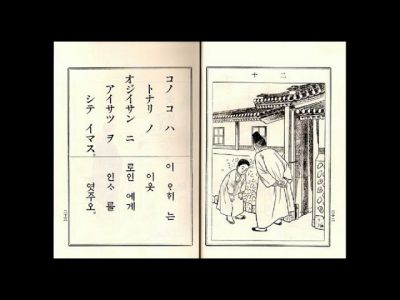 二十
コノ コ ハ
トナリ ノ
オジイサン ニ
アイサツ ヲ
シテ イマス。
이 ᄋᆞ히 는
이웃
로인 에게
인ᄉᆞ 를
엿주오。